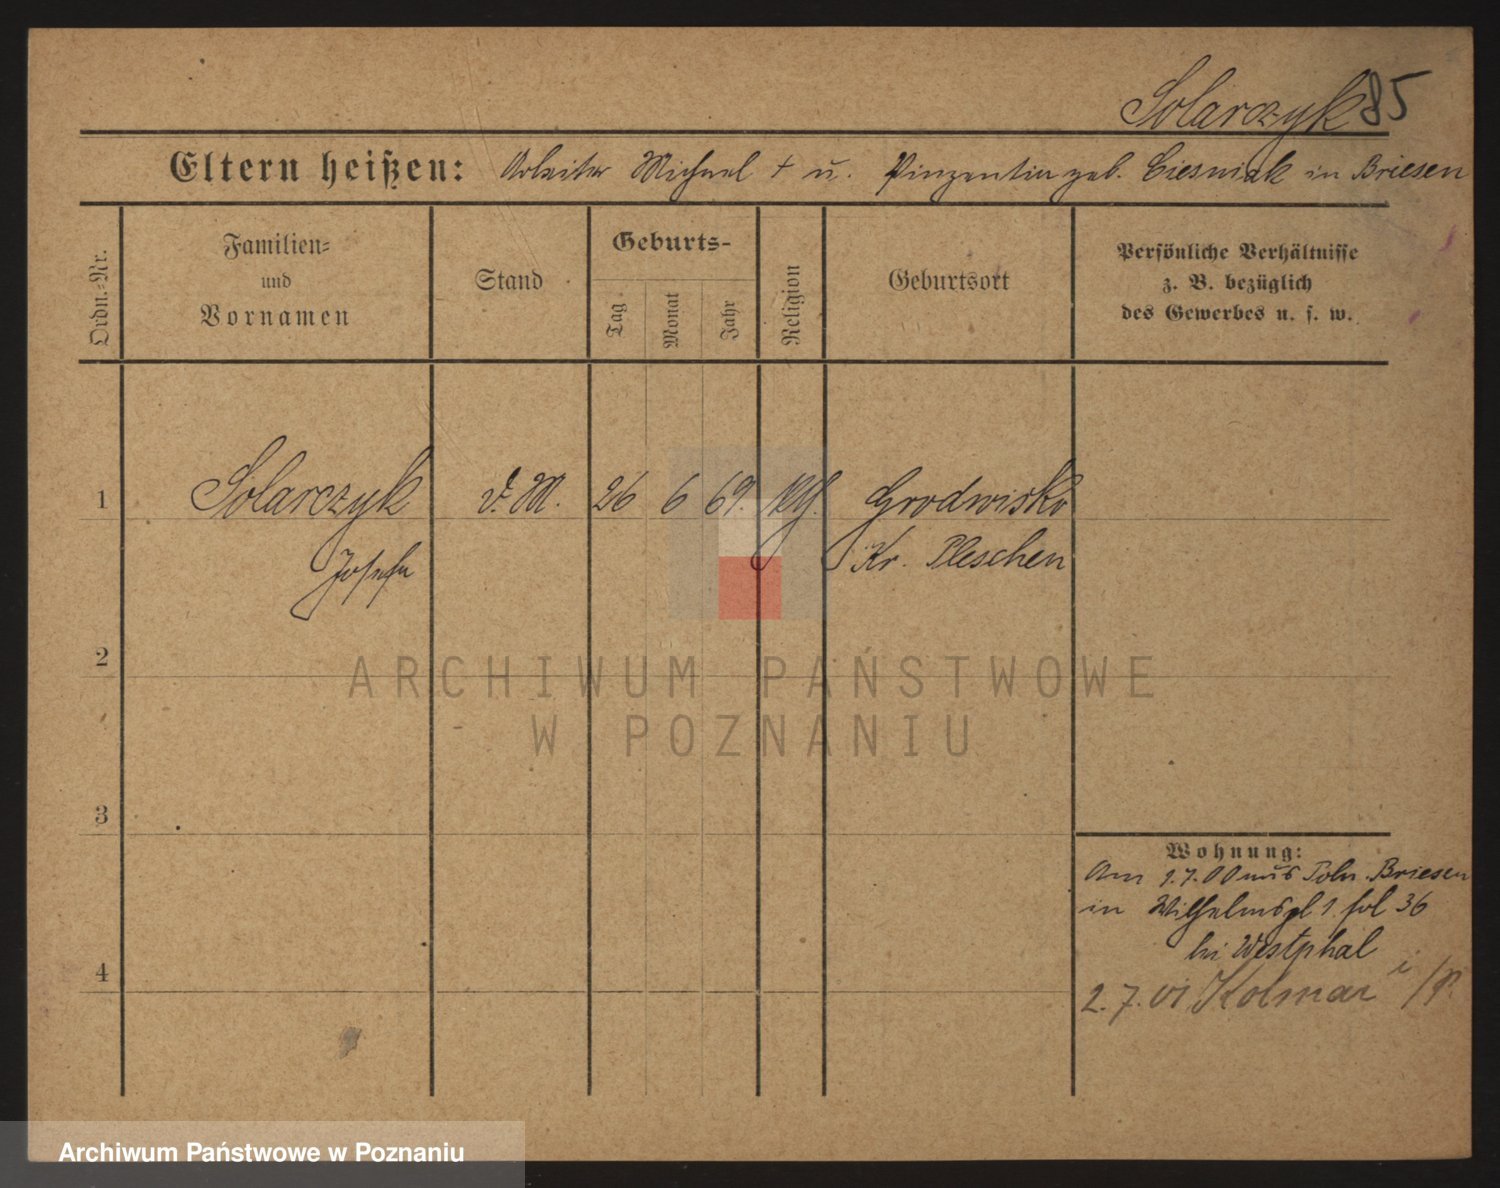 Solarczyk 85
Eltern heißen: Arbeiter Michael † u. Vinzentin geb. Ciesniak in Briesen
Ordn.-Nr.
Familien-
und
Vornamen
Stand
Geburts-
Tag
Monat
Jahr
Religion
Geburtsort
Persönliche Verhältnisse
z. B. bezüglich
des Gewerbes u. s. w.
1 Solarczyk d. M. 26 6 69. Grodwisko
Josefa Kr. Pleschen
2
ARCHIWUM PAŃSTWOWE
W POZNANIU
3
Wohnung:
Am 1.7.00 aus Poln. Briesen
in Wilhelmspl 1. fol 36
bei Westphal
4
2.7.01 Kolmar i/P.
Archiwum Państwowe w Poznaniu